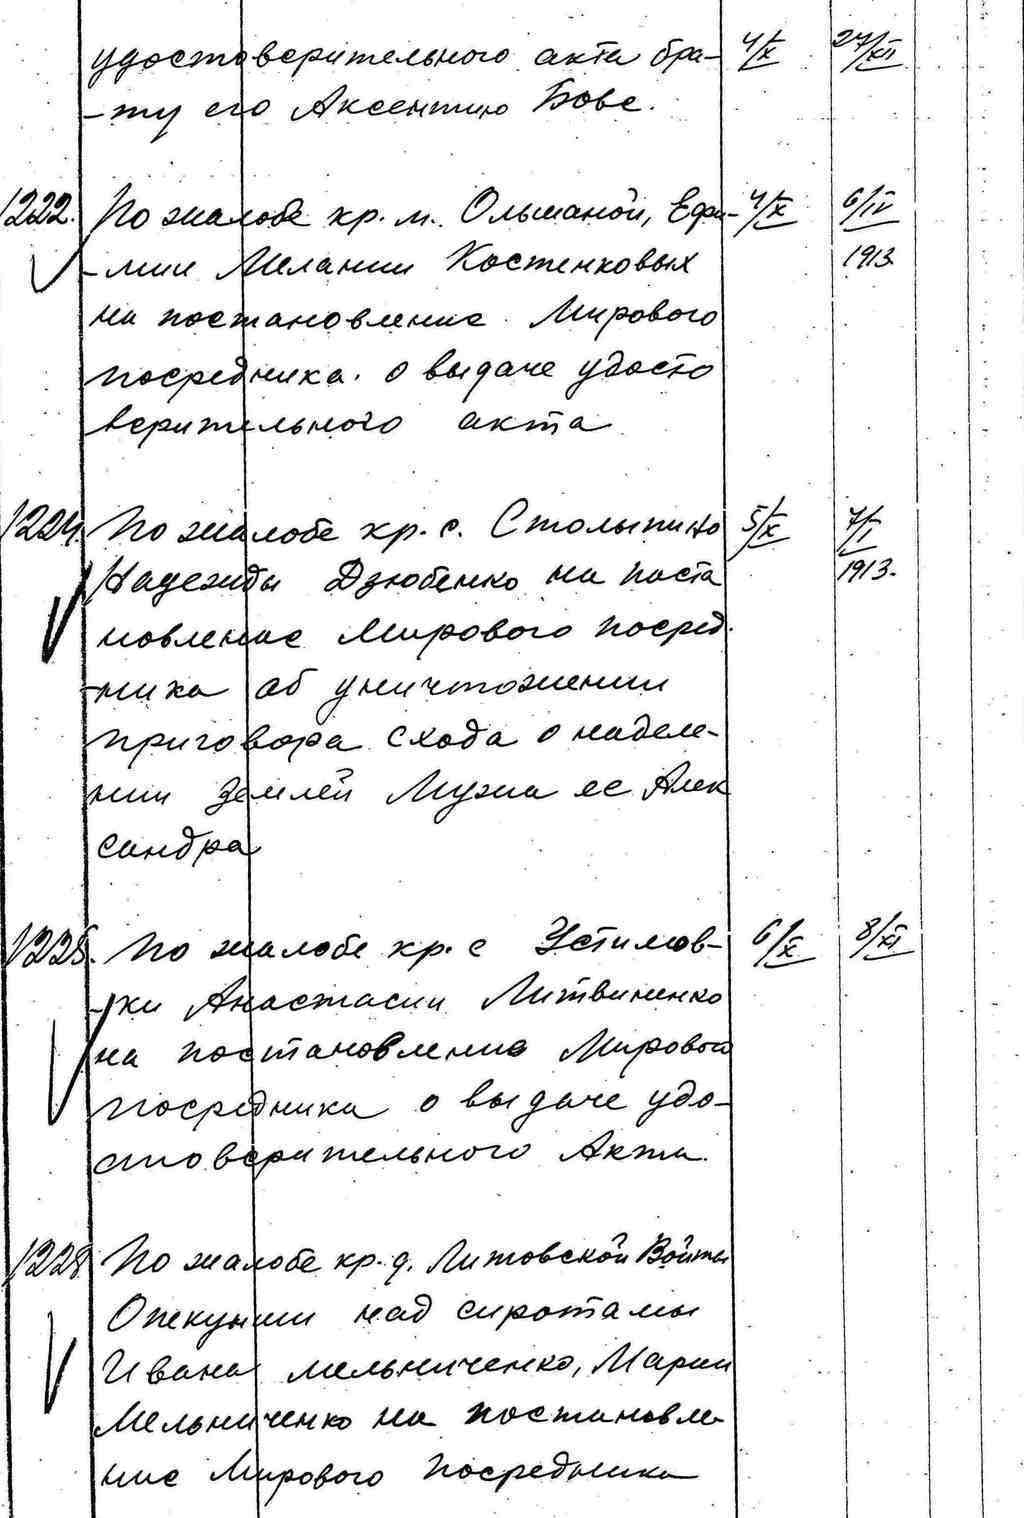 удостоверительного акта бра- 4/X 27/XII
-ту его Аксентию Бове.
1222. По жалобе кр. м. Ольшаной, Ефи- 4/X 6/IV
-мии Мелании Костенковых 1913
на постановление Мирового
посредника. о выдаче удосто
верительного акта
1224. По жалобе кр. с. Столыпино 5/X 7/I
Надежды Дзюбенко на поста 1913.
новление Мирового посред.
-ника об уничтожении
приговора схода о наделе-
нии землей Мужа ее Алек
сандра
1225. По жалобе кр. с Устимов- 6/X 8/XI
-ки Анастасии Литвиненко
на постановление Мирового
посредника о выдаче удо-
стоверительного Акта.
1228 По жалобе кр. д. Литовской
Опекунши над сиротами
Ивана Мельниченко, Марии
Мельниченко на постановле-
ние Мирового посредника